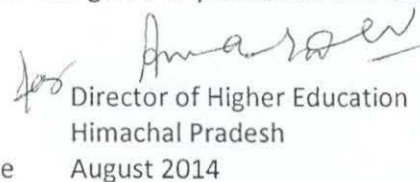 for
Director of Higher Education
Himachal Pradesh
e August 2014